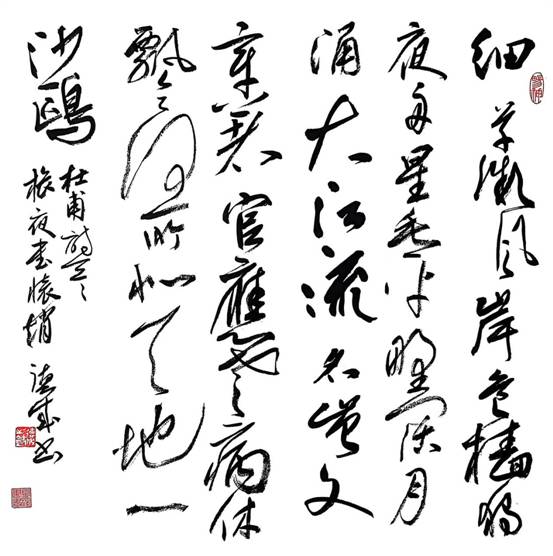 细草微风岸危樯独
夜舟星垂平野阔月
涌大江流名岂文
章著官應老病休
飘飘何所似天地一
沙鷗
杜甫詩
旅夜书懷趙
书